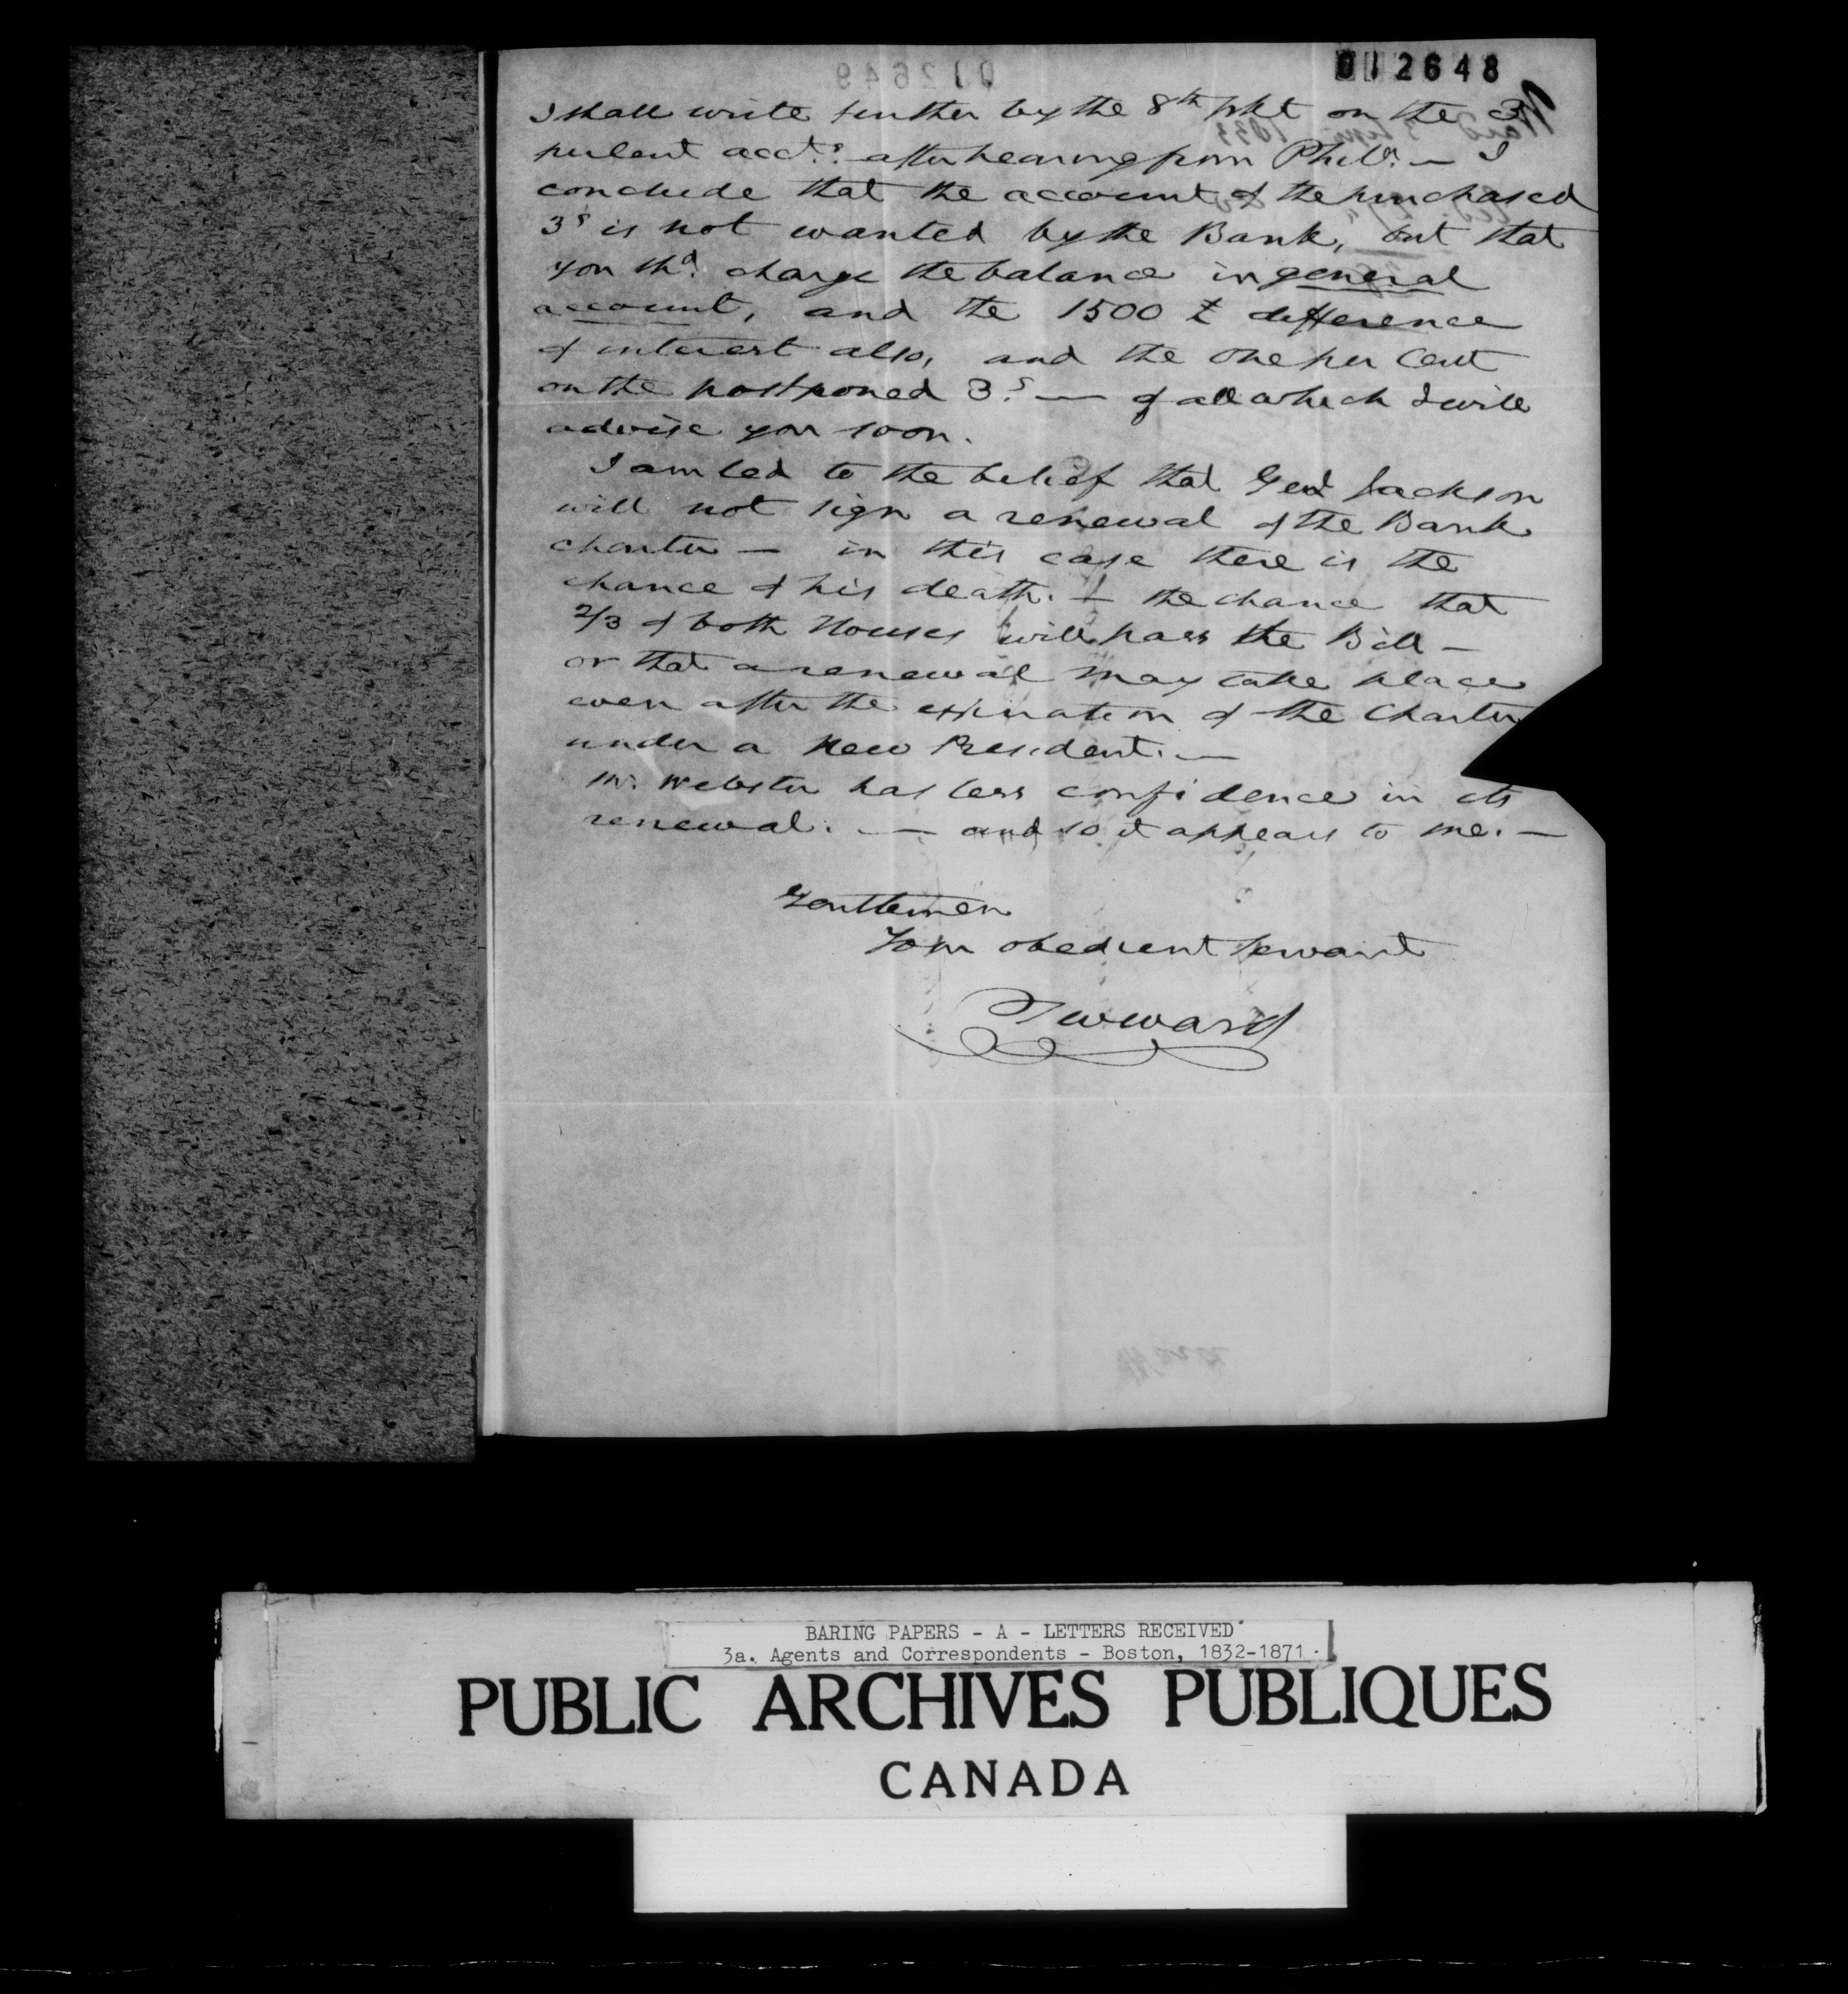 012648
I shall write further by the 8th pkt on the 3
per Cent acct.s after hearing from Phila. — I
conclude that the account of the purchased
3s is not wanted by the Bank, but that
you shd. charge the balance in general
account, and the 1500 £ difference
of interest also, and the one per Cent
on the postponed 3s. — of all which I will
advise you soon.
I am led to the belief that Genl Jackson
will not sign a renewal of the Bank
charter — in this case there is the
chance of his death. — the chance that
2/3 of both Houses will pass the Bill —
or that a renewal may take place
even after the expiration of the Charter
under a new President. —
Mr. Webster has less confidence in its
renewal. — and so it appears to me. —
Gentlemen
Your obedient servant
T W Ward
BARING PAPERS - A - LETTERS RECEIVED
3a. Agents and Correspondents - Boston, 1832-1871
PUBLIC ARCHIVES PUBLIQUES
CANADA